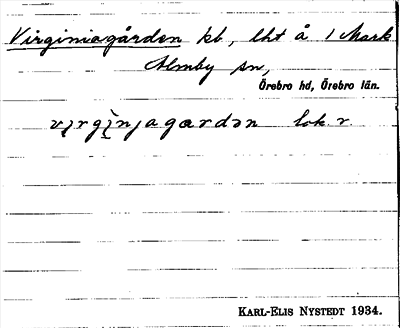 Virginiagården kb, lht å 1 Mark
Almby sn,
Örebro hd, Örebro län.
virginjagardən lok r.
KARL-ELIS NYSTEDT 1934.